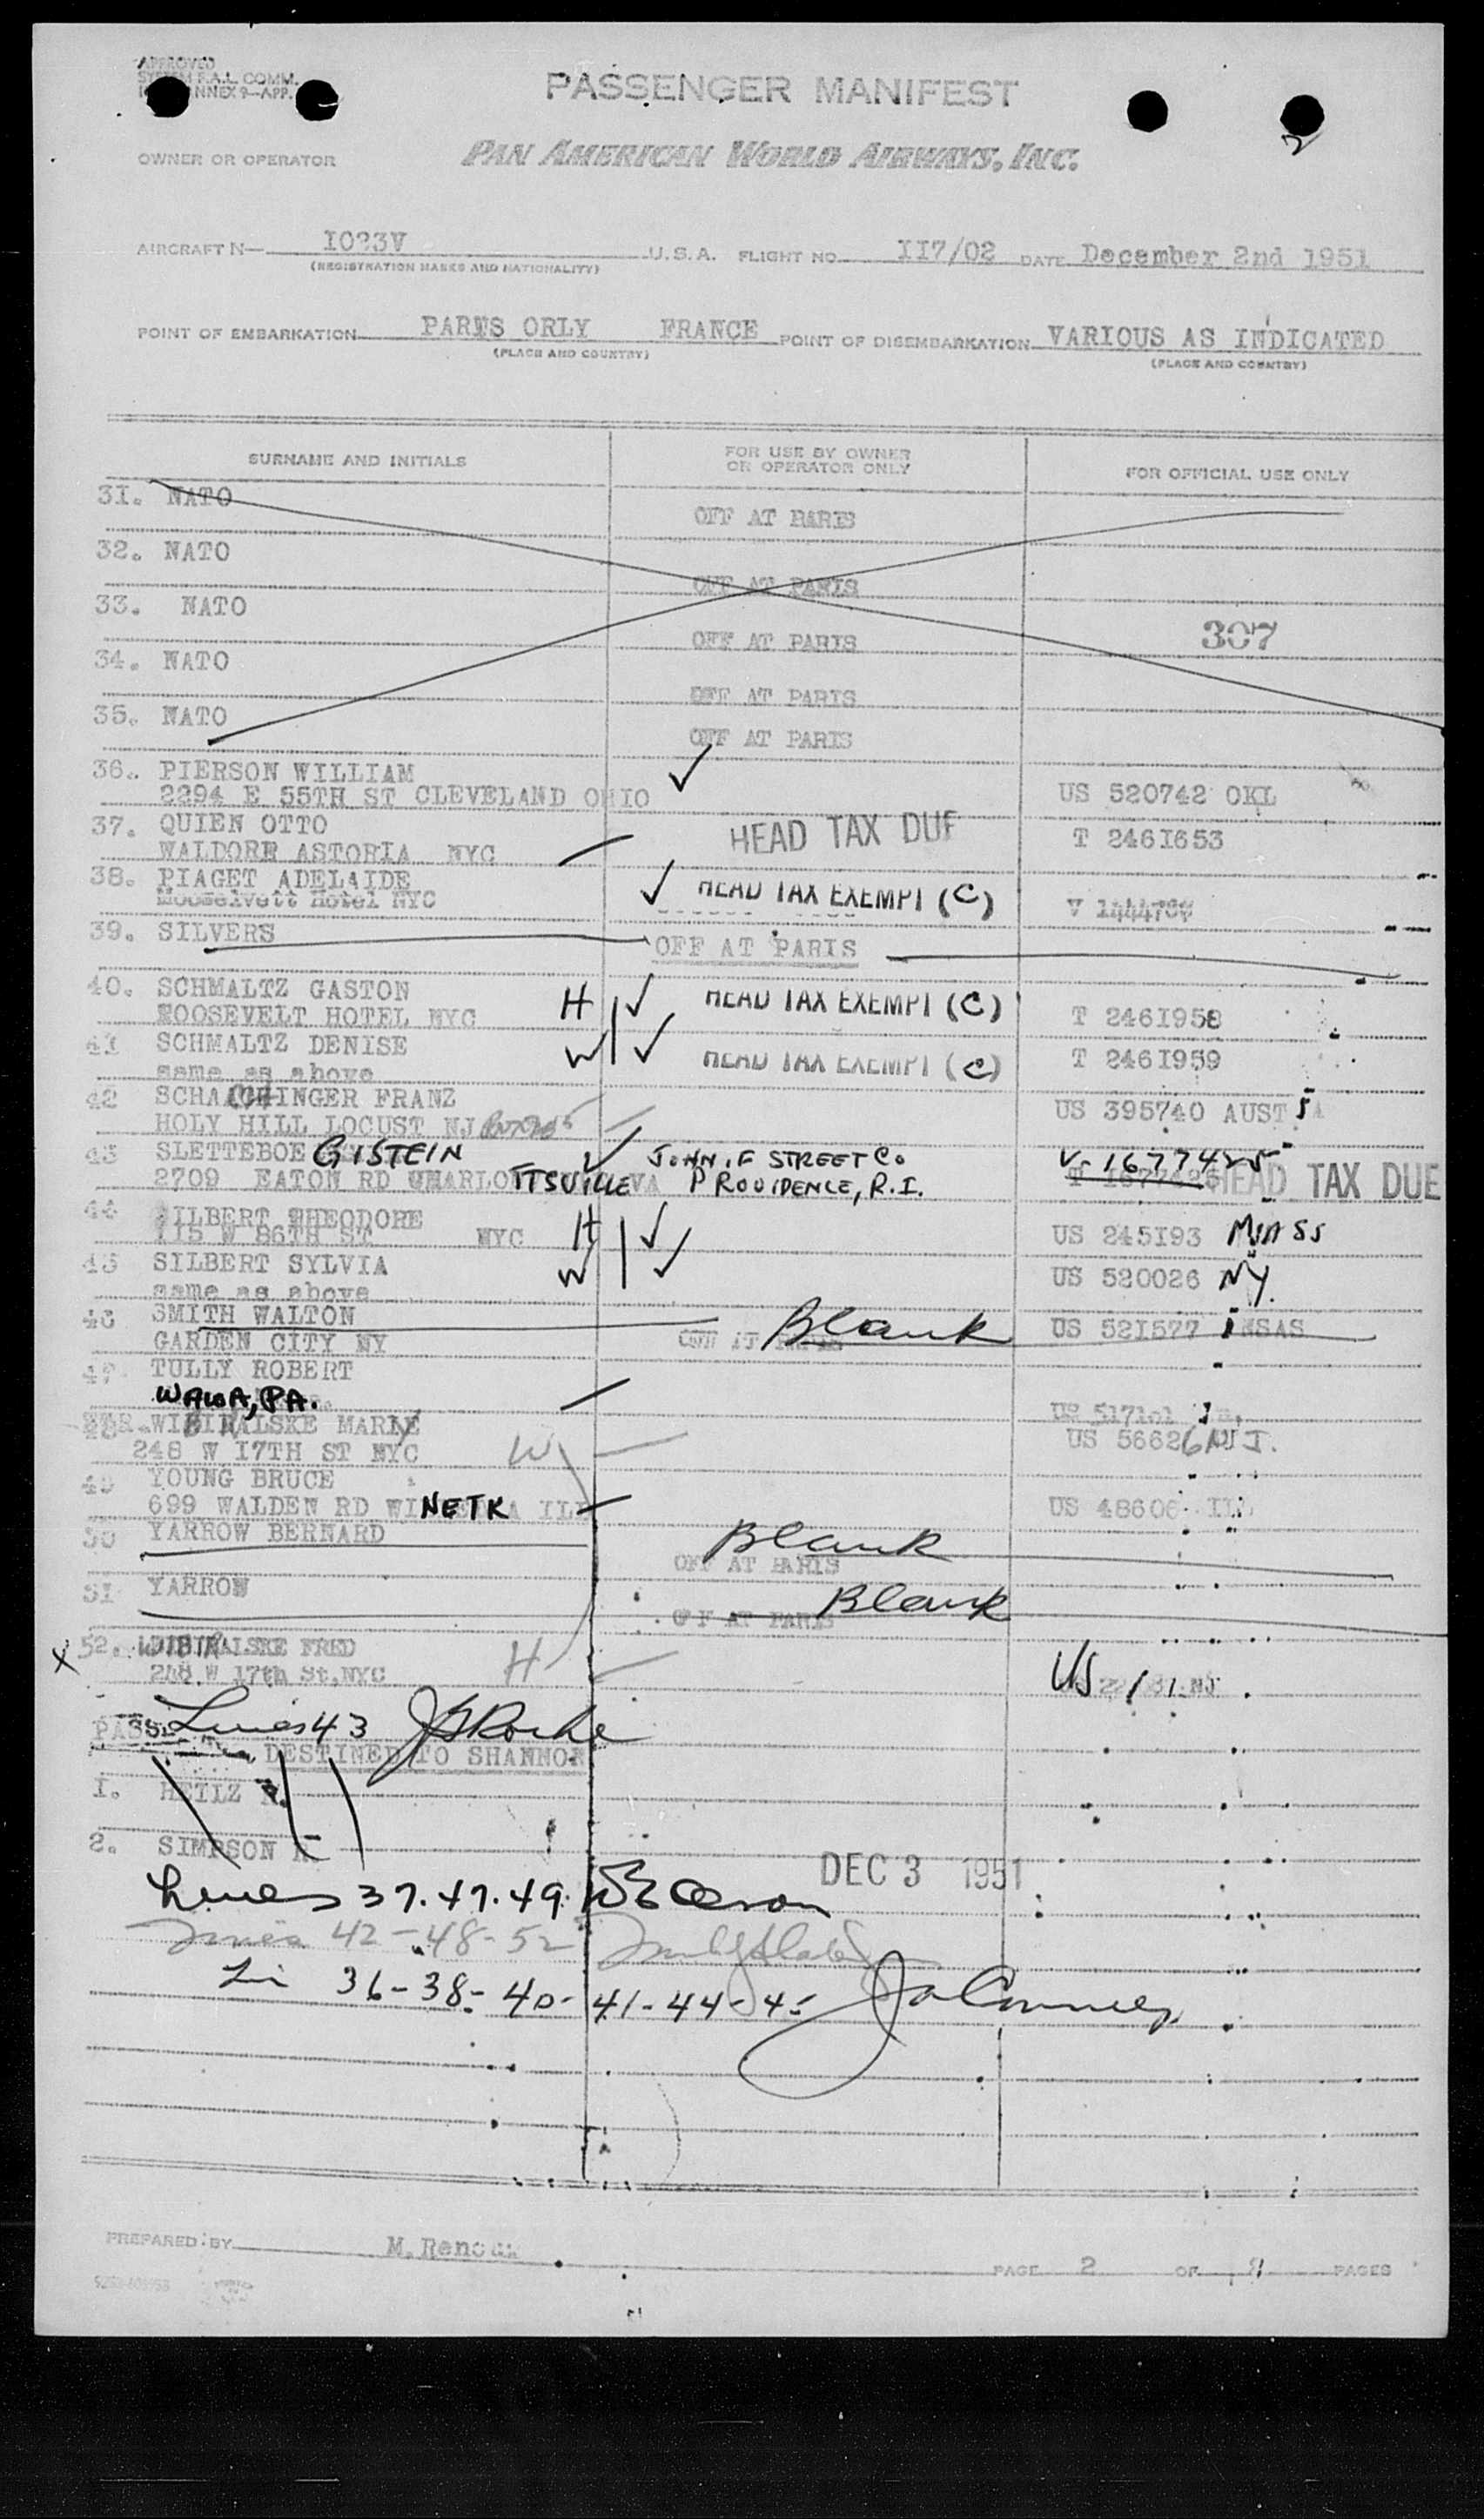 APPROVED
SYSTEM F.A.L. COMM.
ANNEX 9—APP.
PASSENGER MANIFEST
2
PAN AMERICAN WORLD AIRWAYS, INC.
OWNER OR OPERATOR
AIRCRAFT N— I023V U.S.A. FLIGHT NO. II7/02 DATE December 2nd 1951
(REGISTRATION MARKS AND NATIONALITY)
POINT OF EMBARKATION PARIS ORLY FRANCE POINT OF DISEMBARKATION VARIOUS AS INDICATED
(PLACE AND COUNTRY) (PLACE AND COUNTRY)
SURNAME AND INITIALS FOR USE BY OWNER OR OPERATOR ONLY FOR OFFICIAL USE ONLY
31. NATO OFF AT PARIS
32. NATO OFF AT PARIS
33. NATO OFF AT PARIS 307
34. NATO OFF AT PARIS
35. NATO OFF AT PARIS
36. PIERSON WILLIAM
2294 E 55TH ST CLEVELAND OHIO US 520742 OKL
37. QUIEN OTTO HEAD TAX DUE T 246I653
WALDORF ASTORIA NYC
38. PIAGET ADELAIDE HEAD TAX EXEMPT (C)
Roosevelt Hotel NYC V
39. SILVERS OFF AT PARIS
40. SCHMALTZ GASTON H HEAD TAX EXEMPT (C)
ROOSEVELT HOTEL NYC T 246I958
41 SCHMALTZ DENISE W HEAD TAX EXEMPT (C) T 246I959
same as above
42 SCHACHINGER FRANZ
HOLY HILL LOCUST NJ US 395740 AUST
43 SLETTEBOE GISTEIN JOHN. F STREET Co V-1677425
2709 EATON RD CHARLOTTSVILLE VA PROVIDENCE, R.I. HEAD TAX DUE
44 SILBERT THEODORE
115 W 86TH ST NYC H US 245I93 MASS
45 SILBERT SYLVIA W US 520026 NY.
same as above
46 SMITH WALTON Blank US 521577
GARDEN CITY NY OFF AT PARIS
47 TULLY ROBERT
WAWA, PA.
48 WIBIRALSKE MARIE
248 W 17TH ST NYC W US 56626 NJ.
49 YOUNG BRUCE
699 WALDEN RD WINNETKA ILL US 48606 ILL
50 YARROW BERNARD Blank
OFF AT PARIS
51 YARROW Blank
OFF AT PARIS
X 52. WIBIRALSKE FRED
248 W 17th St, NYC H US NJ
Lines 43
DESTINED TO SHANNON
I. HETLZ
2. SIMPSON
DEC 3 1951
Lines 37.47.49.
Lines 42-48-52
Li 36-38-40-41-44-45
PREPARED BY M. Renoux
PAGE 2 OF PAGES